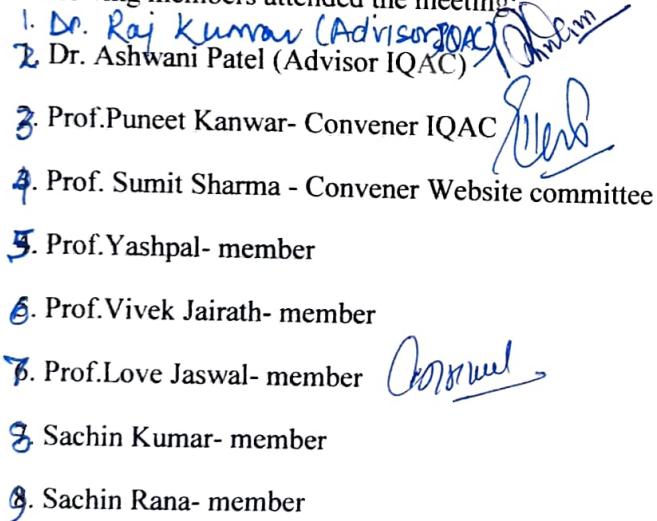 members attended the meeting:
1. Dr. Raj Kumar (Advisor IQAC)
2. Dr. Ashwani Patel (Advisor IQAC)
3. Prof.Puneet Kanwar- Convener IQAC
4. Prof. Sumit Sharma - Convener Website committee
5. Prof.Yashpal- member
6. Prof.Vivek Jairath- member
7. Prof.Love Jaswal- member
8. Sachin Kumar- member
9. Sachin Rana- member